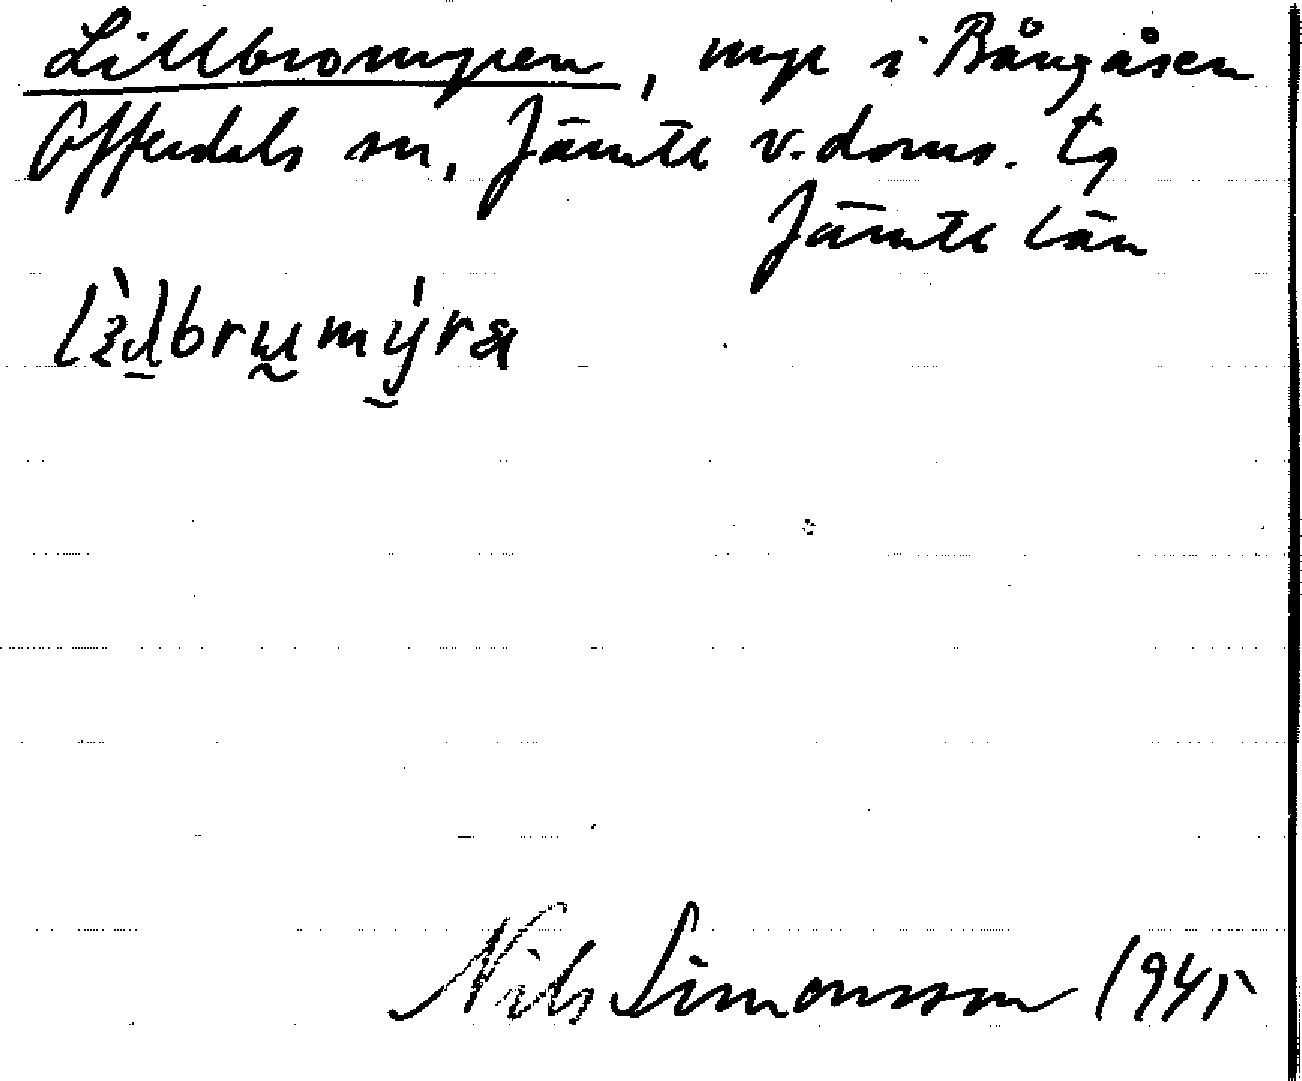 Lillbromyren, myr i Rångåsen
Offerdals sn, Jämtl v. doms. tg
Jämtl län
Nils Simonsson 1945